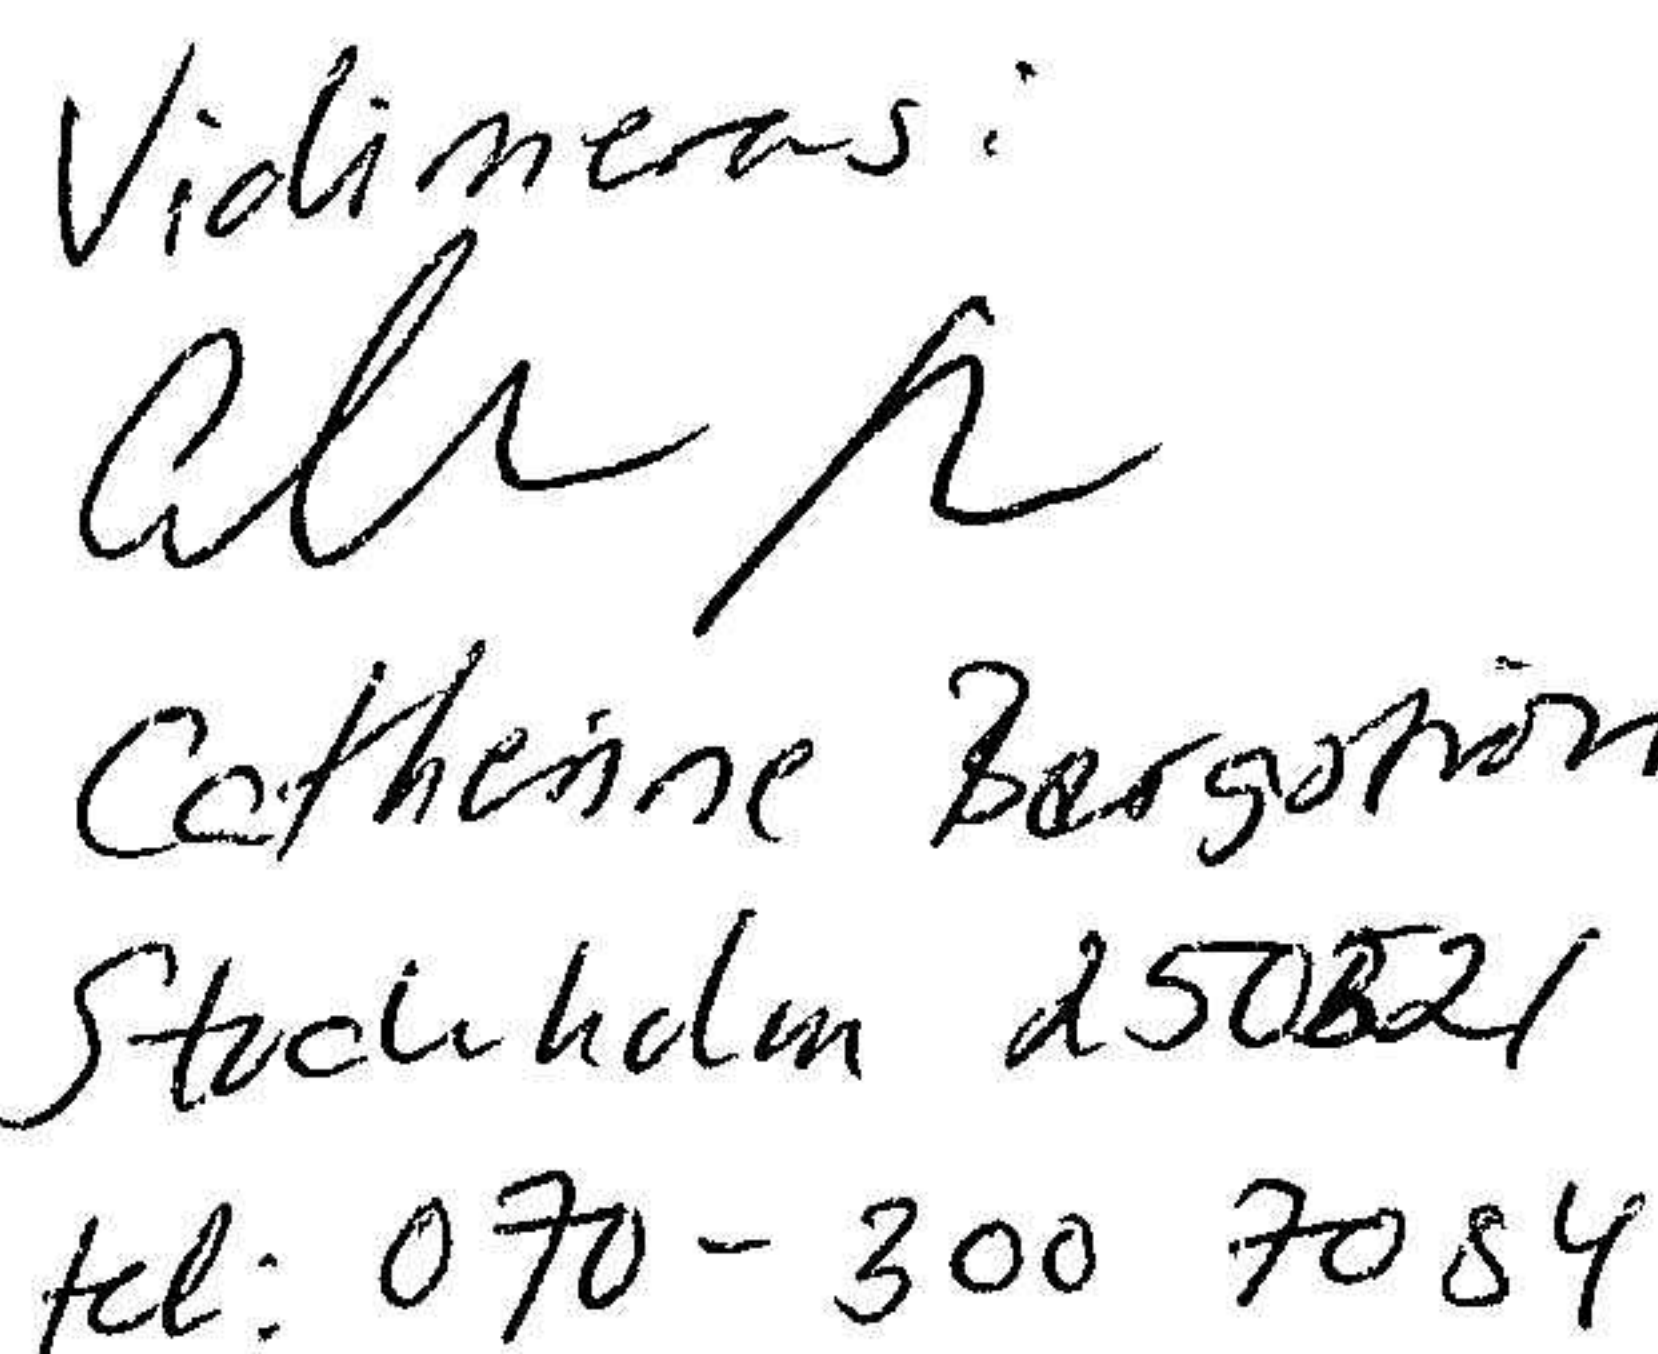 Vidimeras:
Catherine Bergström
Stockholm
tel: 070-300 7084